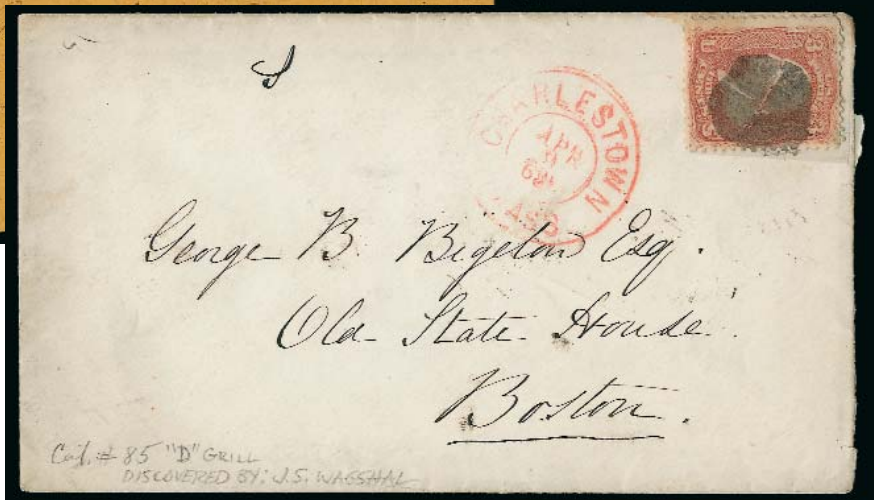 CHARLESTOWN
APR
8
68
MASS
George B Bigelow Esq.
Old State House
Boston.
Cat. # 85 "D" GRILL
DISCOVERED BY: J.S. WAGSHAL